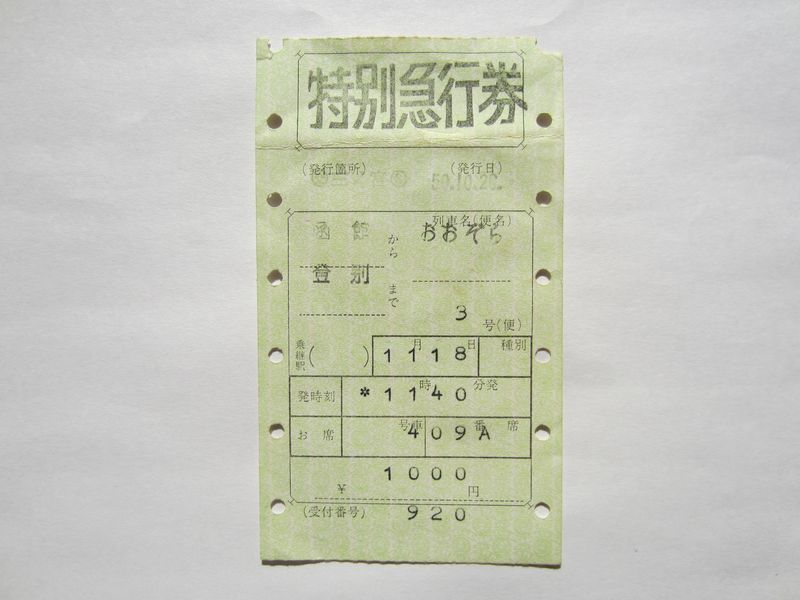 特別急行券
(発行箇所) (発行日)
50.10.20.
列車名(便名)
函館 から おおぞら
登別 まで
3 号(便)
乗継駅( ) 11月18日 種別
発時刻 *11時40分発
お席 4号車 09番A席
¥1000円
(受付番号) 920